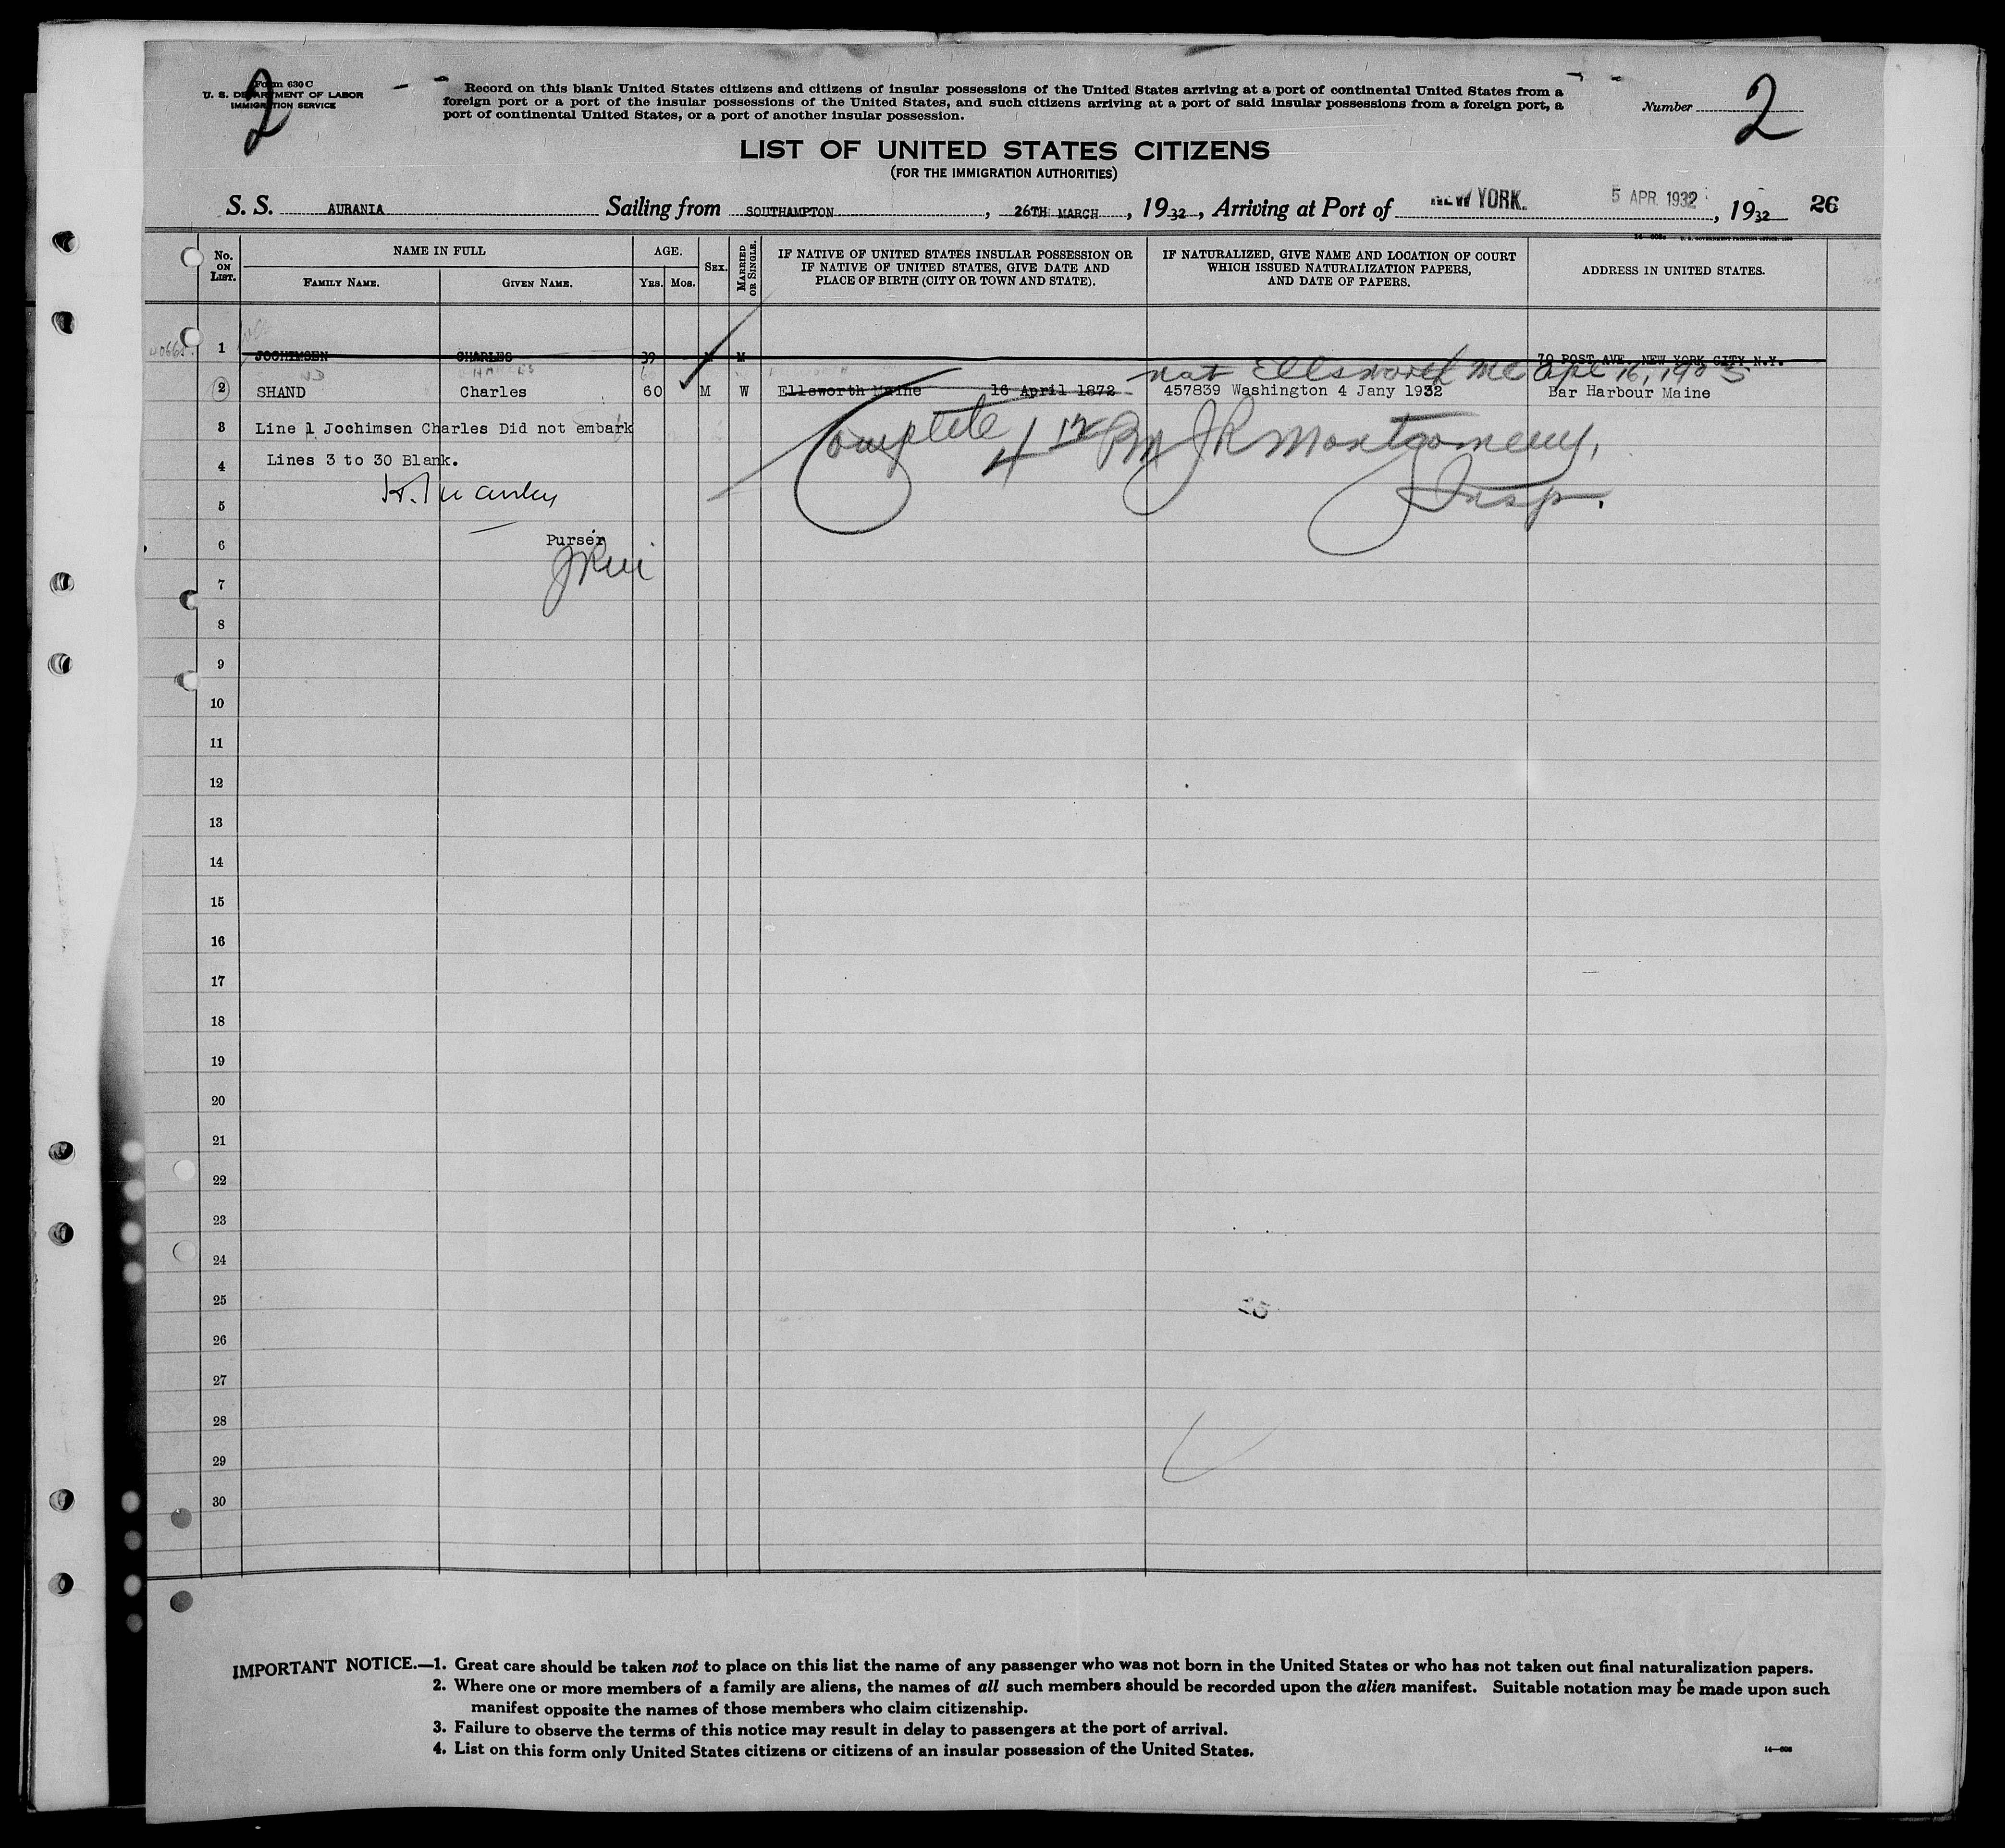 Form 630 C
U. S. DEPARTMENT OF LABOR
IMMIGRATION SERVICE
2
Record on this blank United States citizens and citizens of insular possessions of the United States arriving at a port of continental United States from a
foreign port or a port of the insular possessions of the United States, and such citizens arriving at a port of said insular possessions from a foreign port, a
port of continental United States, or a port of another insular possession.
Number 2
LIST OF UNITED STATES CITIZENS
(FOR THE IMMIGRATION AUTHORITIES)
S. S. AURANIA Sailing from SOUTHAMPTON, 26TH MARCH, 1932, Arriving at Port of NEW YORK. 5 APR 1932, 1932 26
No. ON LIST. NAME IN FULL AGE. SEX. MARRIED OR SINGLE. IF NATIVE OF UNITED STATES INSULAR POSSESSION OR IF NATIVE OF UNITED STATES, GIVE DATE AND PLACE OF BIRTH (CITY OR TOWN AND STATE). IF NATURALIZED, GIVE NAME AND LOCATION OF COURT WHICH ISSUED NATURALIZATION PAPERS, AND DATE OF PAPERS. ADDRESS IN UNITED STATES.
FAMILY NAME. GIVEN NAME. YRS. MOS.
1 JOCHIMSEN CHARLES 39 M M 70 POST AVE. NEW YORK CITY N.Y.
nat Ellsworth Me Apl 16, 1903
2 SHAND Charles 60 M W Ellsworth Maine 16 April 1872 457839 Washington 4 Jany 1932 Bar Harbour Maine
3 Line 1 Jochimsen Charles Did not embark
Complete 4 12 Pm JR Montgomery,
4 Lines 3 to 30 Blank.
Insp.
5
6 Purser
7
8
9
10
11
12
13
14
15
16
17
18
19
20
21
22
23
24
25
26
27
28
29
30
IMPORTANT NOTICE.—1. Great care should be taken not to place on this list the name of any passenger who was not born in the United States or who has not taken out final naturalization papers.
2. Where one or more members of a family are aliens, the names of all such members should be recorded upon the alien manifest. Suitable notation may be made upon such
manifest opposite the names of those members who claim citizenship.
3. Failure to observe the terms of this notice may result in delay to passengers at the port of arrival.
4. List on this form only United States citizens or citizens of an insular possession of the United States.